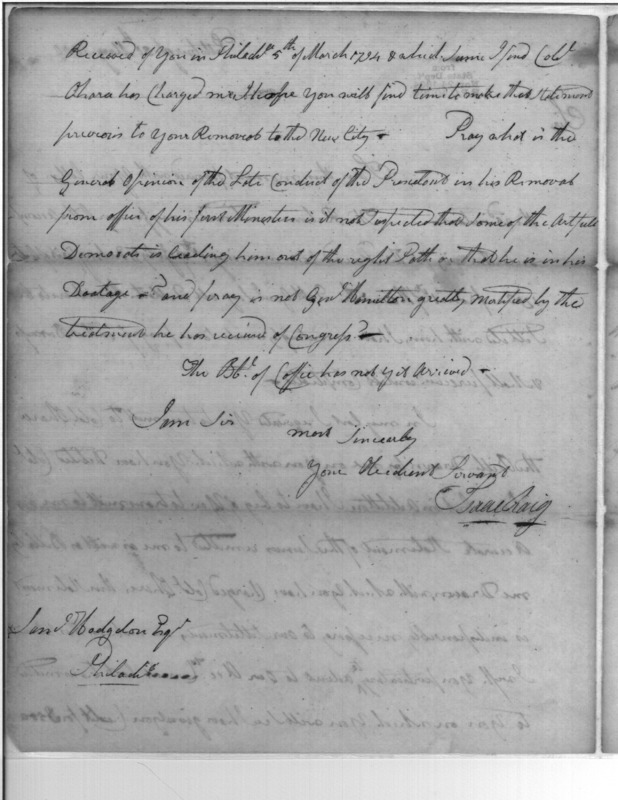 Received of You in Philada. 5th of March 1794 & which Sume I find Colo.
Ohara has Charged me. I hope You will find time to make that Statement
previous to Your Removeal to the New City - Pray what is the
General Opinion of the Late Conduct of the President in his Removeal
from office of his first Ministers is it not suspected that some of the Artfull
Democrats is leading him out of the right Path or that he is in his
Dootage - and pray is not Genl. Hamilton greatly mortified by the
treatment he has received of Congress -
The Bbl. of Coffee has not yet Arrived -
I am Sir
most Sincearly
Your Obedient Servant
Isaac Craig
Saml. Hodgdon Esqr.
Philada